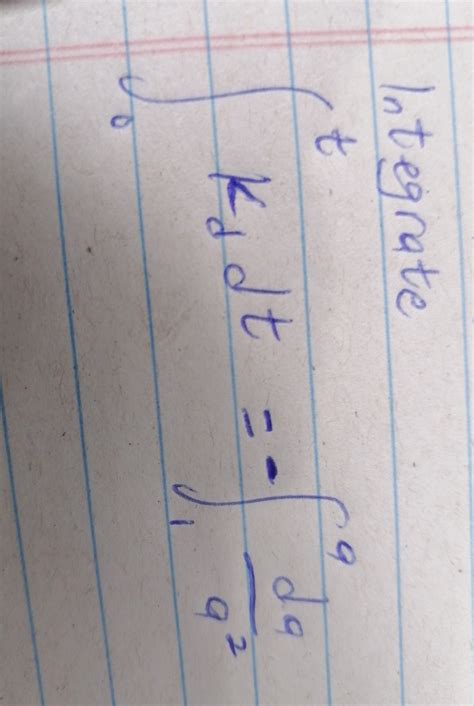 Integrate
∫₀ᵗ k_d dt = - ∫₁^a da/a²